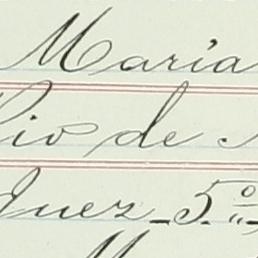 Maria
Rio de
Juez - 5º